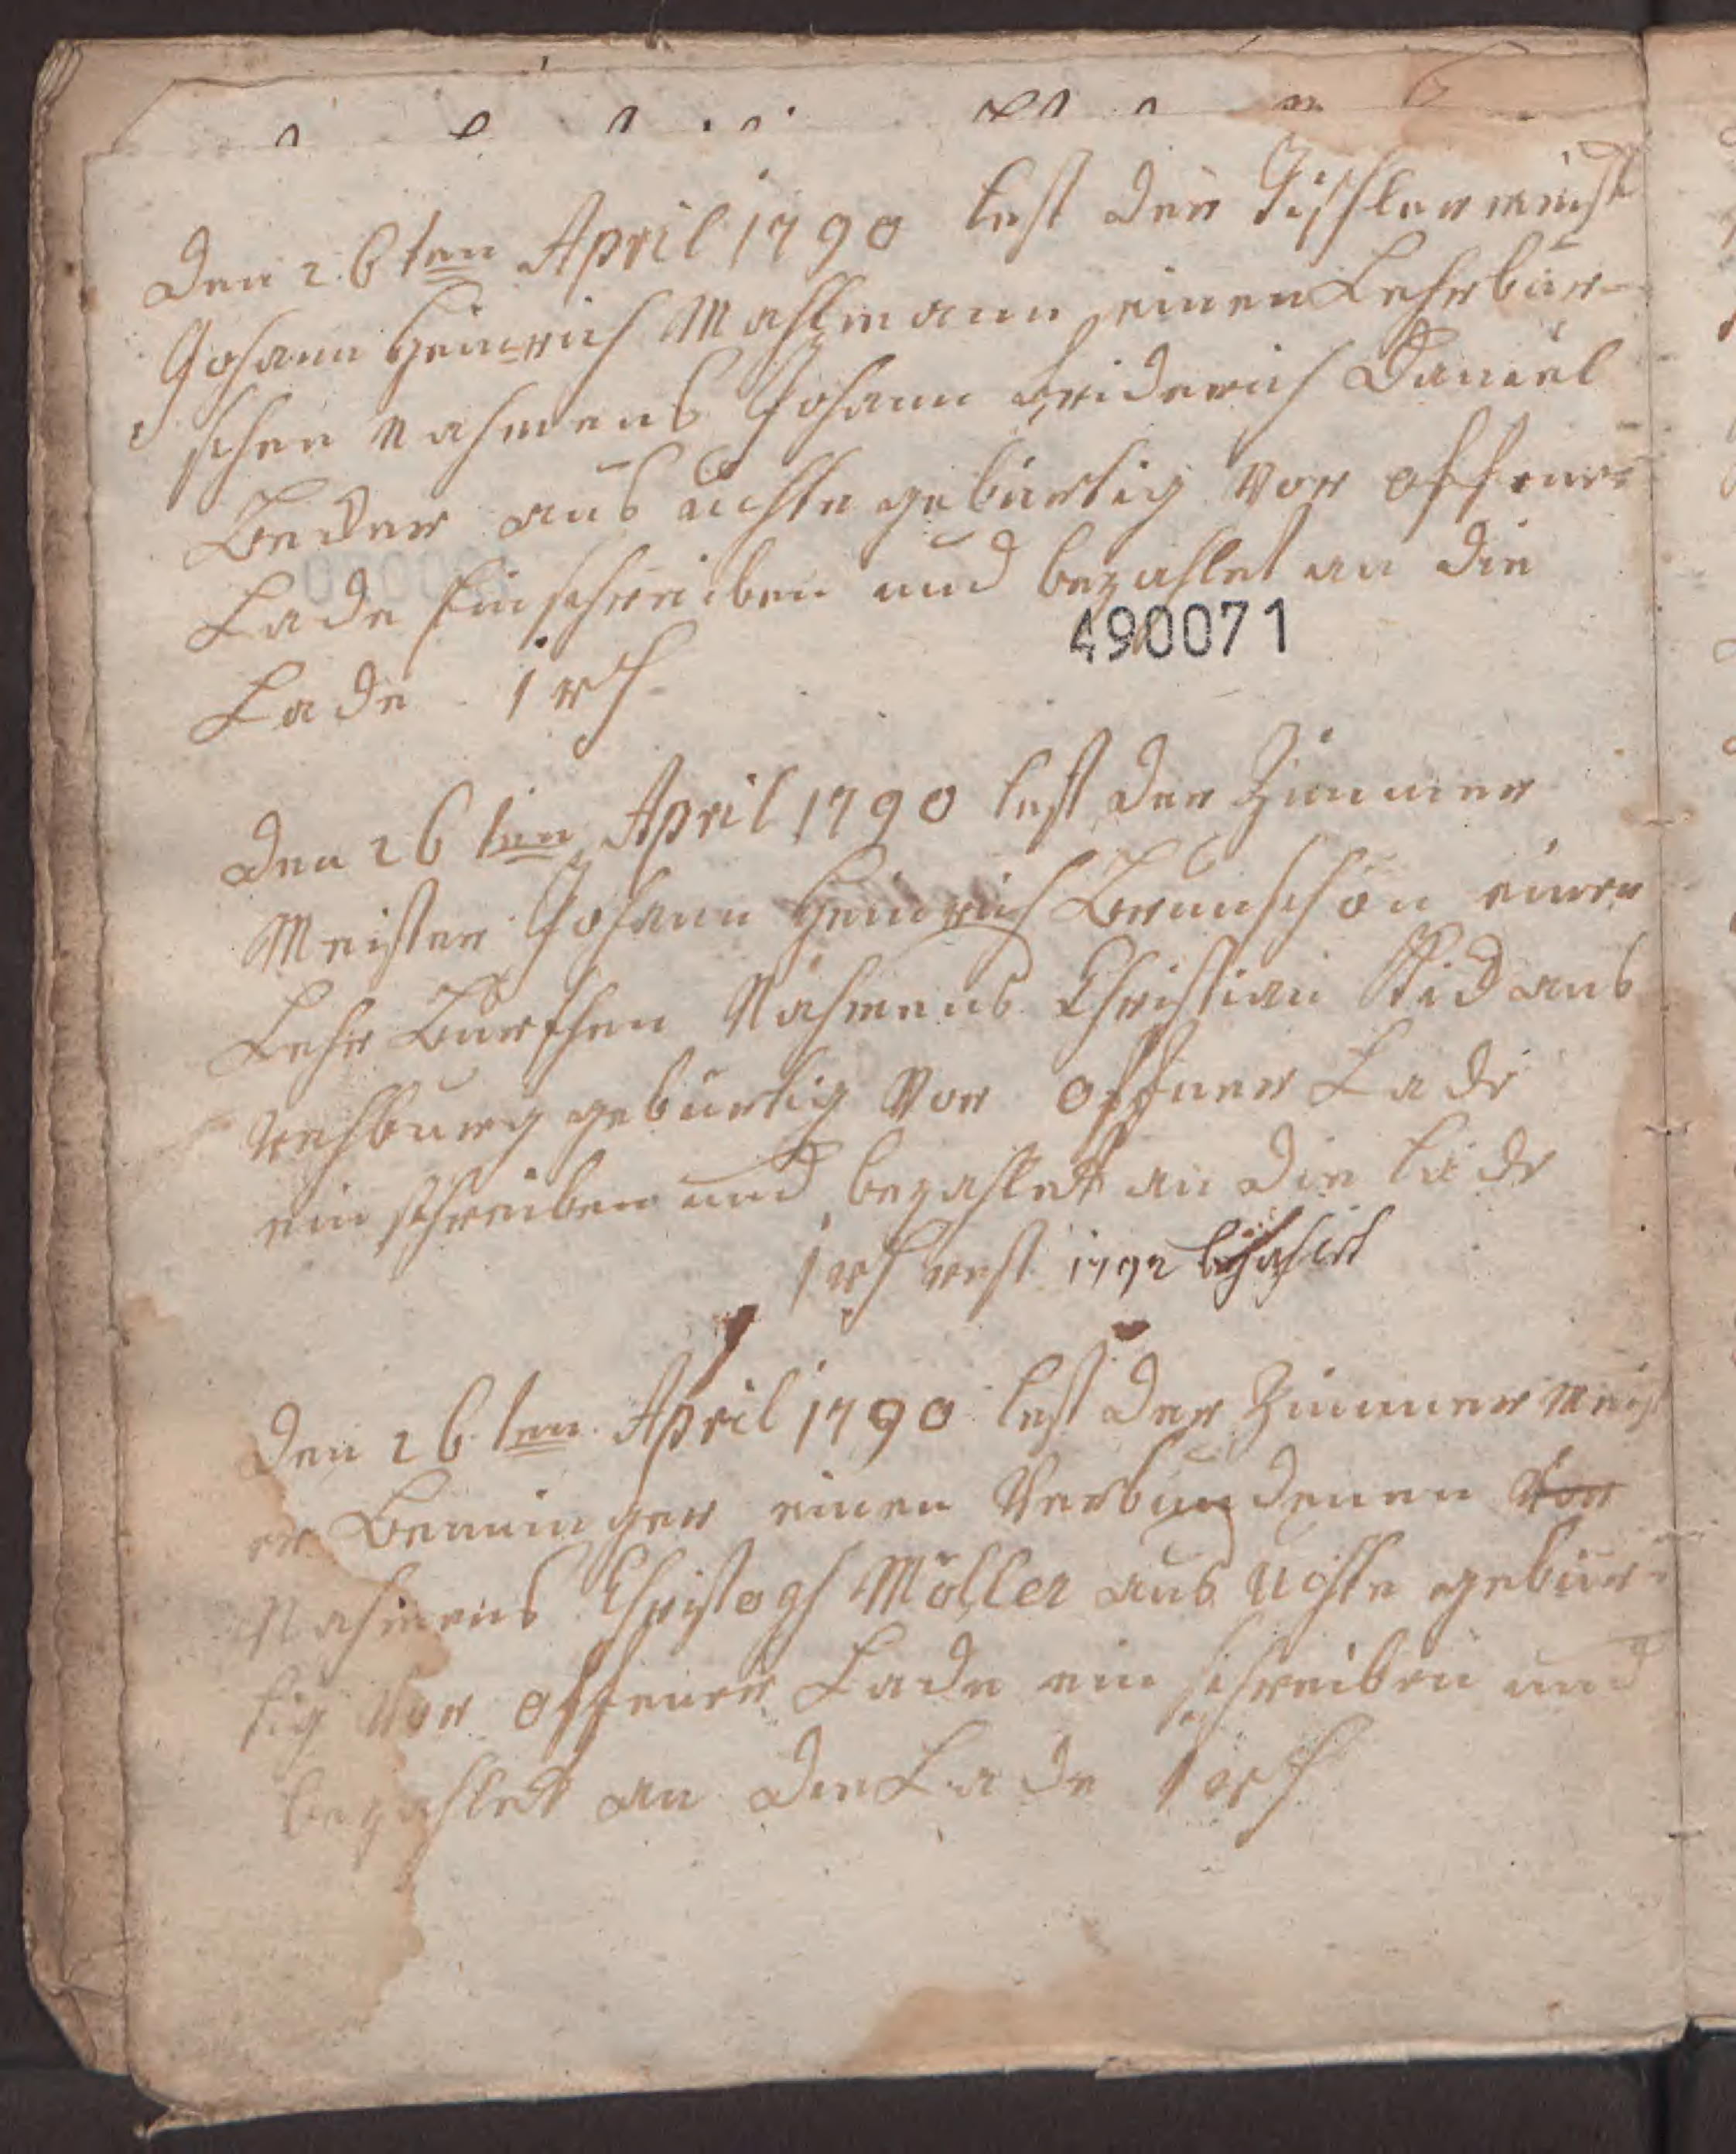 Den 26ten April 1790 lest der Tischlermeist
Johann Heinrich Mahlmann einen Lehrbur-
schen Nahmens Johann Friderich Daniel
Becker aus Uchte gebürtig vor offener
Lade Einschreiben und bezahlet an die
490071
Lade 1 rth
Den 26ten April 1790 lest der Zimmer
Meister Johann Heinrich Brunschön einen
Lehr Burschen Nahmens Christian aus
Rehburg gebürtig Vor offner Lade
ein schreiben und bezahlet an die Lade
1 rth rest 1792 bezahlt
Den 26ten April 1790 lest der Zimmer Meist
er Benninger einen Verbundenen Vor
Nahmens Christoph Möller aus Uchte gebür-
tig Vor offener Lade ein schreiben und
bezahlet an die Lade 1 rth